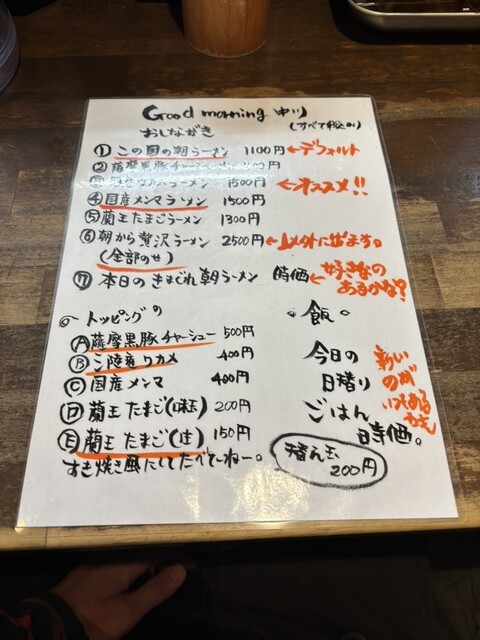 Good morning 中川
おしながき (すべて税込)
① この国の朝ラーメン 1100円 ←デフォルト
② 薩摩黒豚チャーシュー
ラーメン 1500円 ←オススメ!!
④ 国産メンマラーメン 1500円
⑤ 蘭王たまごラーメン 1300円
⑥ 朝から贅沢ラーメン 2500円
(全部のせ)
⑦ 本日のきまぐれ朝ラーメン 時価 ←好きなの
あるかな?
トッピング
Ⓐ 薩摩黒豚チャーシュー 500円
Ⓑ 三陸産ワカメ 400円
Ⓒ 国産メンマ 400円
Ⓓ 蘭王たまご(味玉) 200円
Ⓔ 蘭王たまご(生) 150円
すき焼き風にしてたべてねー。
飯
今日の
日替り
ごはん
時価。
新しい
のが
替え玉
200円